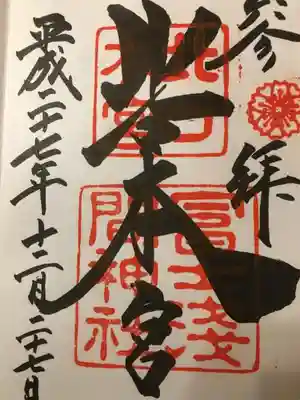 参拝
北口本宮
冨士浅間神社
本宮
平成二十七年十二月二十七日